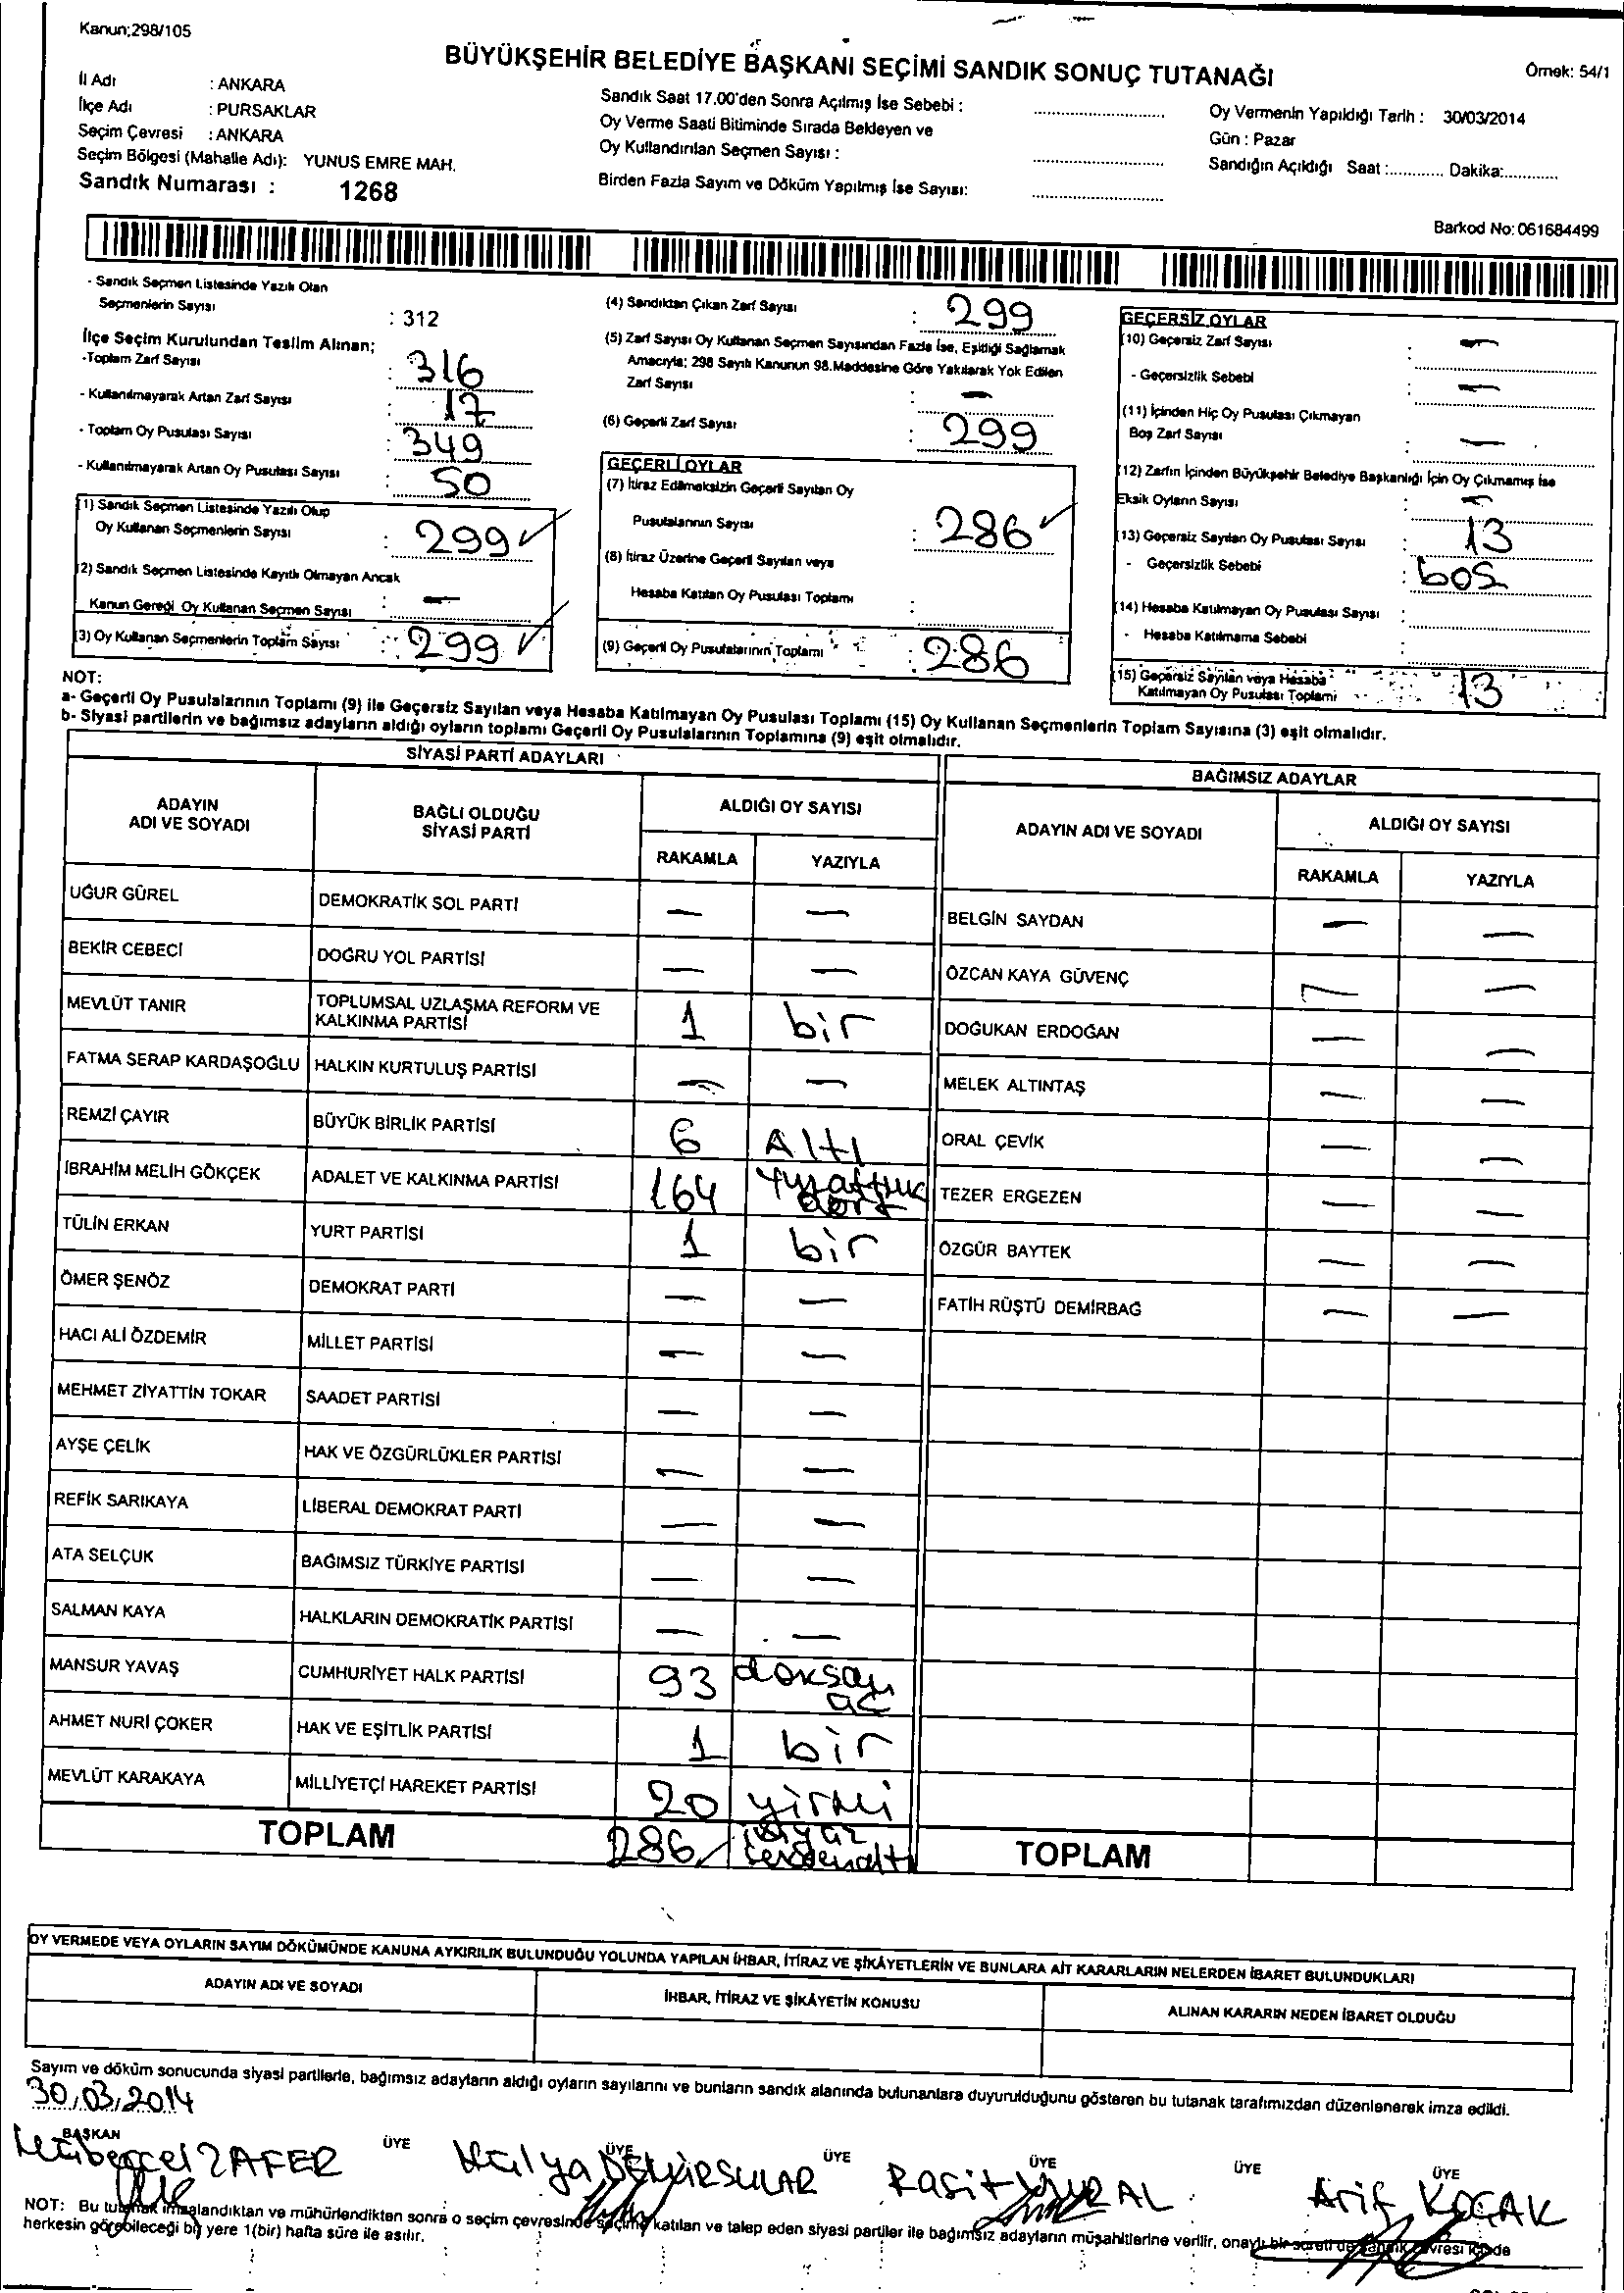 Kanun:298/105
BÜYÜKŞEHİR BELEDİYE BAŞKANI SEÇİMİ SANDIK SONUÇ TUTANAĞI
Örnek: 54/1
İl Adı : ANKARA
İlçe Adı : PURSAKLAR
Seçim Çevresi : ANKARA
Seçim Bölgesi (Mahalle Adı): YUNUS EMRE MAH.
Sandık Numarası : 1268
Sandık Saat 17.00'den Sonra Açılmış İse Sebebi :
Oy Verme Saati Bitiminde Sırada Bekleyen ve
Oy Kullandırılan Seçmen Sayısı :
Birden Fazla Sayım ve Döküm Yapılmış İse Sayısı:
Oy Vermenin Yapıldığı Tarih : 30/03/2014
Gün : Pazar
Sandığın Açıldığı Saat :............ Dakika:............
Barkod No: 061684499
- Sandık Seçmen Listesinde Yazılı Olan
Seçmenlerin Sayısı : 312
İlçe Seçim Kurulundan Teslim Alınan;
-Toplam Zarf Sayısı : 316
- Kullanılmayarak Artan Zarf Sayısı : 17
- Toplam Oy Pusulası Sayısı : 349
- Kullanılmayarak Artan Oy Pusulası Sayısı : 50
(1) Sandık Seçmen Listesinde Yazılı Olup
Oy Kullanan Seçmenlerin Sayısı : 299
(2) Sandık Seçmen Listesinde Kayıtlı Olmayan Ancak
Kanun Gereği Oy Kullanan Seçmen Sayısı : —
(3) Oy Kullanan Seçmenlerin Toplam Sayısı : 299
(4) Sandıktan Çıkan Zarf Sayısı : 299
(5) Zarf Sayısı Oy Kullanan Seçmen Sayısından Fazla İse, Eşitliği Sağlamak
Amacıyla; 298 Sayılı Kanunun 98.Maddesine Göre Yakılarak Yok Edilen
Zarf Sayısı : —
(6) Geçerli Zarf Sayısı : 299
GEÇERLİ OYLAR
(7) İtiraz Edilmeksizin Geçerli Sayılan Oy
Pusulalarının Sayısı : 286
(8) İtiraz Üzerine Geçerli Sayılan veya
Hesaba Katılan Oy Pusulası Toplamı :
(9) Geçerli Oy Pusulalarının Toplamı : 286
GEÇERSİZ OYLAR
(10) Geçersiz Zarf Sayısı : —
- Geçersizlik Sebebi : —
(11) İçinden Hiç Oy Pusulası Çıkmayan
Boş Zarf Sayısı : —
(12) Zarfın İçinden Büyükşehir Belediye Başkanlığı İçin Oy Çıkmamış İse
Eksik Oyların Sayısı : —
(13) Geçersiz Sayılan Oy Pusulası Sayısı : 13
- Geçersizlik Sebebi : boş
(14) Hesaba Katılmayan Oy Pusulası Sayısı :
- Hesaba Katılmama Sebebi :
(15) Geçersiz Sayılan veya Hesaba
Katılmayan Oy Pusulası Toplamı : 13
NOT:
a- Geçerli Oy Pusulalarının Toplamı (9) ile Geçersiz Sayılan veya Hesaba Katılmayan Oy Pusulası Toplamı (15) Oy Kullanan Seçmenlerin Toplam Sayısına (3) eşit olmalıdır.
b- Siyasi partilerin ve bağımsız adayların aldığı oyların toplamı Geçerli Oy Pusulalarının Toplamına (9) eşit olmalıdır.
SİYASİ PARTİ ADAYLARI
ADAYIN ADI VE SOYADI
BAĞLI OLDUĞU SİYASİ PARTİ
ALDIĞI OY SAYISI
RAKAMLA YAZIYLA
UĞUR GÜREL DEMOKRATİK SOL PARTİ — —
BEKİR CEBECİ DOĞRU YOL PARTİSİ — —
MEVLÜT TANIR TOPLUMSAL UZLAŞMA REFORM VE KALKINMA PARTİSİ 1 bir
FATMA SERAP KARDAŞOĞLU HALKIN KURTULUŞ PARTİSİ — —
REMZİ ÇAYIR BÜYÜK BİRLİK PARTİSİ 6 Altı
İBRAHİM MELİH GÖKÇEK ADALET VE KALKINMA PARTİSİ 164 dört
TÜLİN ERKAN YURT PARTİSİ 1 bir
ÖMER ŞENÖZ DEMOKRAT PARTİ — —
HACI ALİ ÖZDEMİR MİLLET PARTİSİ — —
MEHMET ZİYATTİN TOKAR SAADET PARTİSİ — —
AYŞE ÇELİK HAK VE ÖZGÜRLÜKLER PARTİSİ — —
REFİK SARIKAYA LİBERAL DEMOKRAT PARTİ — —
ATA SELÇUK BAĞIMSIZ TÜRKİYE PARTİSİ — —
SALMAN KAYA HALKLARIN DEMOKRATİK PARTİSİ — —
MANSUR YAVAŞ CUMHURİYET HALK PARTİSİ 93 doksan üç
AHMET NURİ ÇOKER HAK VE EŞİTLİK PARTİSİ 1 bir
MEVLÜT KARAKAYA MİLLİYETÇİ HAREKET PARTİSİ 20 yirmi
TOPLAM 286
BAĞIMSIZ ADAYLAR
ADAYIN ADI VE SOYADI
ALDIĞI OY SAYISI
RAKAMLA YAZIYLA
BELGİN SAYDAN — —
ÖZCAN KAYA GÜVENÇ — —
DOĞUKAN ERDOĞAN — —
MELEK ALTINTAŞ — —
ORAL ÇEVİK — —
TEZER ERGEZEN — —
ÖZGÜR BAYTEK — —
FATİH RÜŞTÜ DEMİRBAĞ — —
TOPLAM
OY VERMEDE VEYA OYLARIN SAYIM DÖKÜMÜNDE KANUNA AYKIRILIK BULUNDUĞU YOLUNDA YAPILAN İHBAR, İTİRAZ VE ŞİKÂYETLERİN VE BUNLARA AİT KARARLARIN NELERDEN İBARET BULUNDUKLARI
ADAYIN ADI VE SOYADI
İHBAR, İTİRAZ VE ŞİKÂYETİN KONUSU
ALINAN KARARIN NEDEN İBARET OLDUĞU
Sayım ve döküm sonucunda siyasi partilerle, bağımsız adayların aldığı oyların sayılarını ve bunların sandık alanında bulunanlara duyurulduğunu gösteren bu tutanak tarafımızdan düzenlenerek imza edildi.
30.03.2014
BAŞKAN ÜYE ÜYE ÜYE ÜYE ÜYE ÜYE
ZAFER Hülya Raşit Arif KOÇAK
NOT: Bu tutanak imzalandıktan ve mühürlendikten sonra o seçim çevresinde seçime katılan ve talep eden siyasi partiler ile bağımsız adayların müşahitlerine verilir, onaylı bir sureti de sandık çevresi içinde
herkesin görebileceği bir yere 1(bir) hafta süre ile asılır.